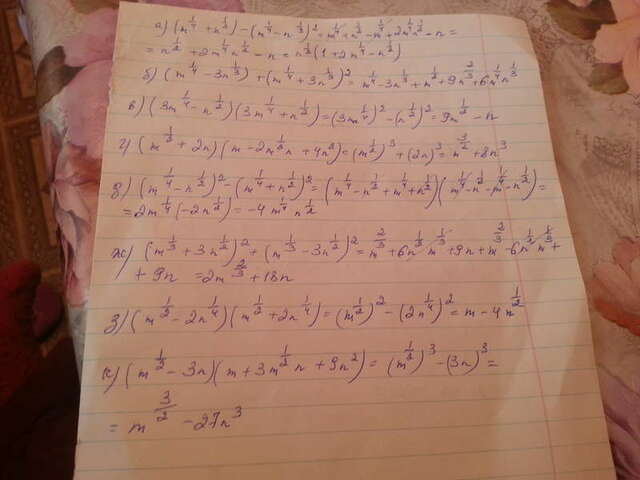 а) (m^{1/4} + n^{1/2}) - (m^{1/4} - n^{1/2})^2 = m^{1/4} + n^{1/2} - m^{1/4} + 2m^{1/4}n^{1/2} - n =
= n^{1/2} + 2m^{1/4}n^{1/2} - n = n^{1/2}(1 + 2m^{1/4} - n^{1/2})
б) (m^{1/4} - 3n^{1/3}) + (m^{1/4} + 3n^{1/3})^2 = m^{1/4} - 3n^{1/3} + m^{1/2} + 9n^{2/3} + 6m^{1/4}n^{1/3}
в) (3m^{1/4} - n^{1/2})(3m^{1/4} + n^{1/2}) = (3m^{1/4})^2 - (n^{1/2})^2 = 9m^{1/2} - n
г) (m^{1/2} + 2n)(m - 2m^{1/2}n + 4n^2) = (m^{1/2})^3 + (2n)^3 = m^{3/2} + 8n^3
д) (m^{1/4} - n^{1/2})^2 - (m^{1/4} + n^{1/2})^2 = (m^{1/4} - n^{1/2} + m^{1/4} + n^{1/2})(m^{1/4} - n^{1/2} - m^{1/4} - n^{1/2}) =
= 2m^{1/4}(-2n^{1/2}) = -4m^{1/4}n^{1/2}
ж) (m^{1/3} + 3n^{1/2})^2 + (m^{1/3} - 3n^{1/2})^2 = m^{2/3} + 6n^{1/2}m^{1/3} + 9n + m^{2/3} - 6n^{1/2}m^{1/3} +
+ 9n = 2m^{2/3} + 18n
з) (m^{1/2} - 2n^{1/4})(m^{1/2} + 2n^{1/4}) = (m^{1/2})^2 - (2n^{1/4})^2 = m - 4n^{1/2}
к) (m^{1/2} - 3n)(m + 3m^{1/2}n + 9n^2) = (m^{1/2})^3 - (3n)^3 =
= m^{3/2} - 27n^3